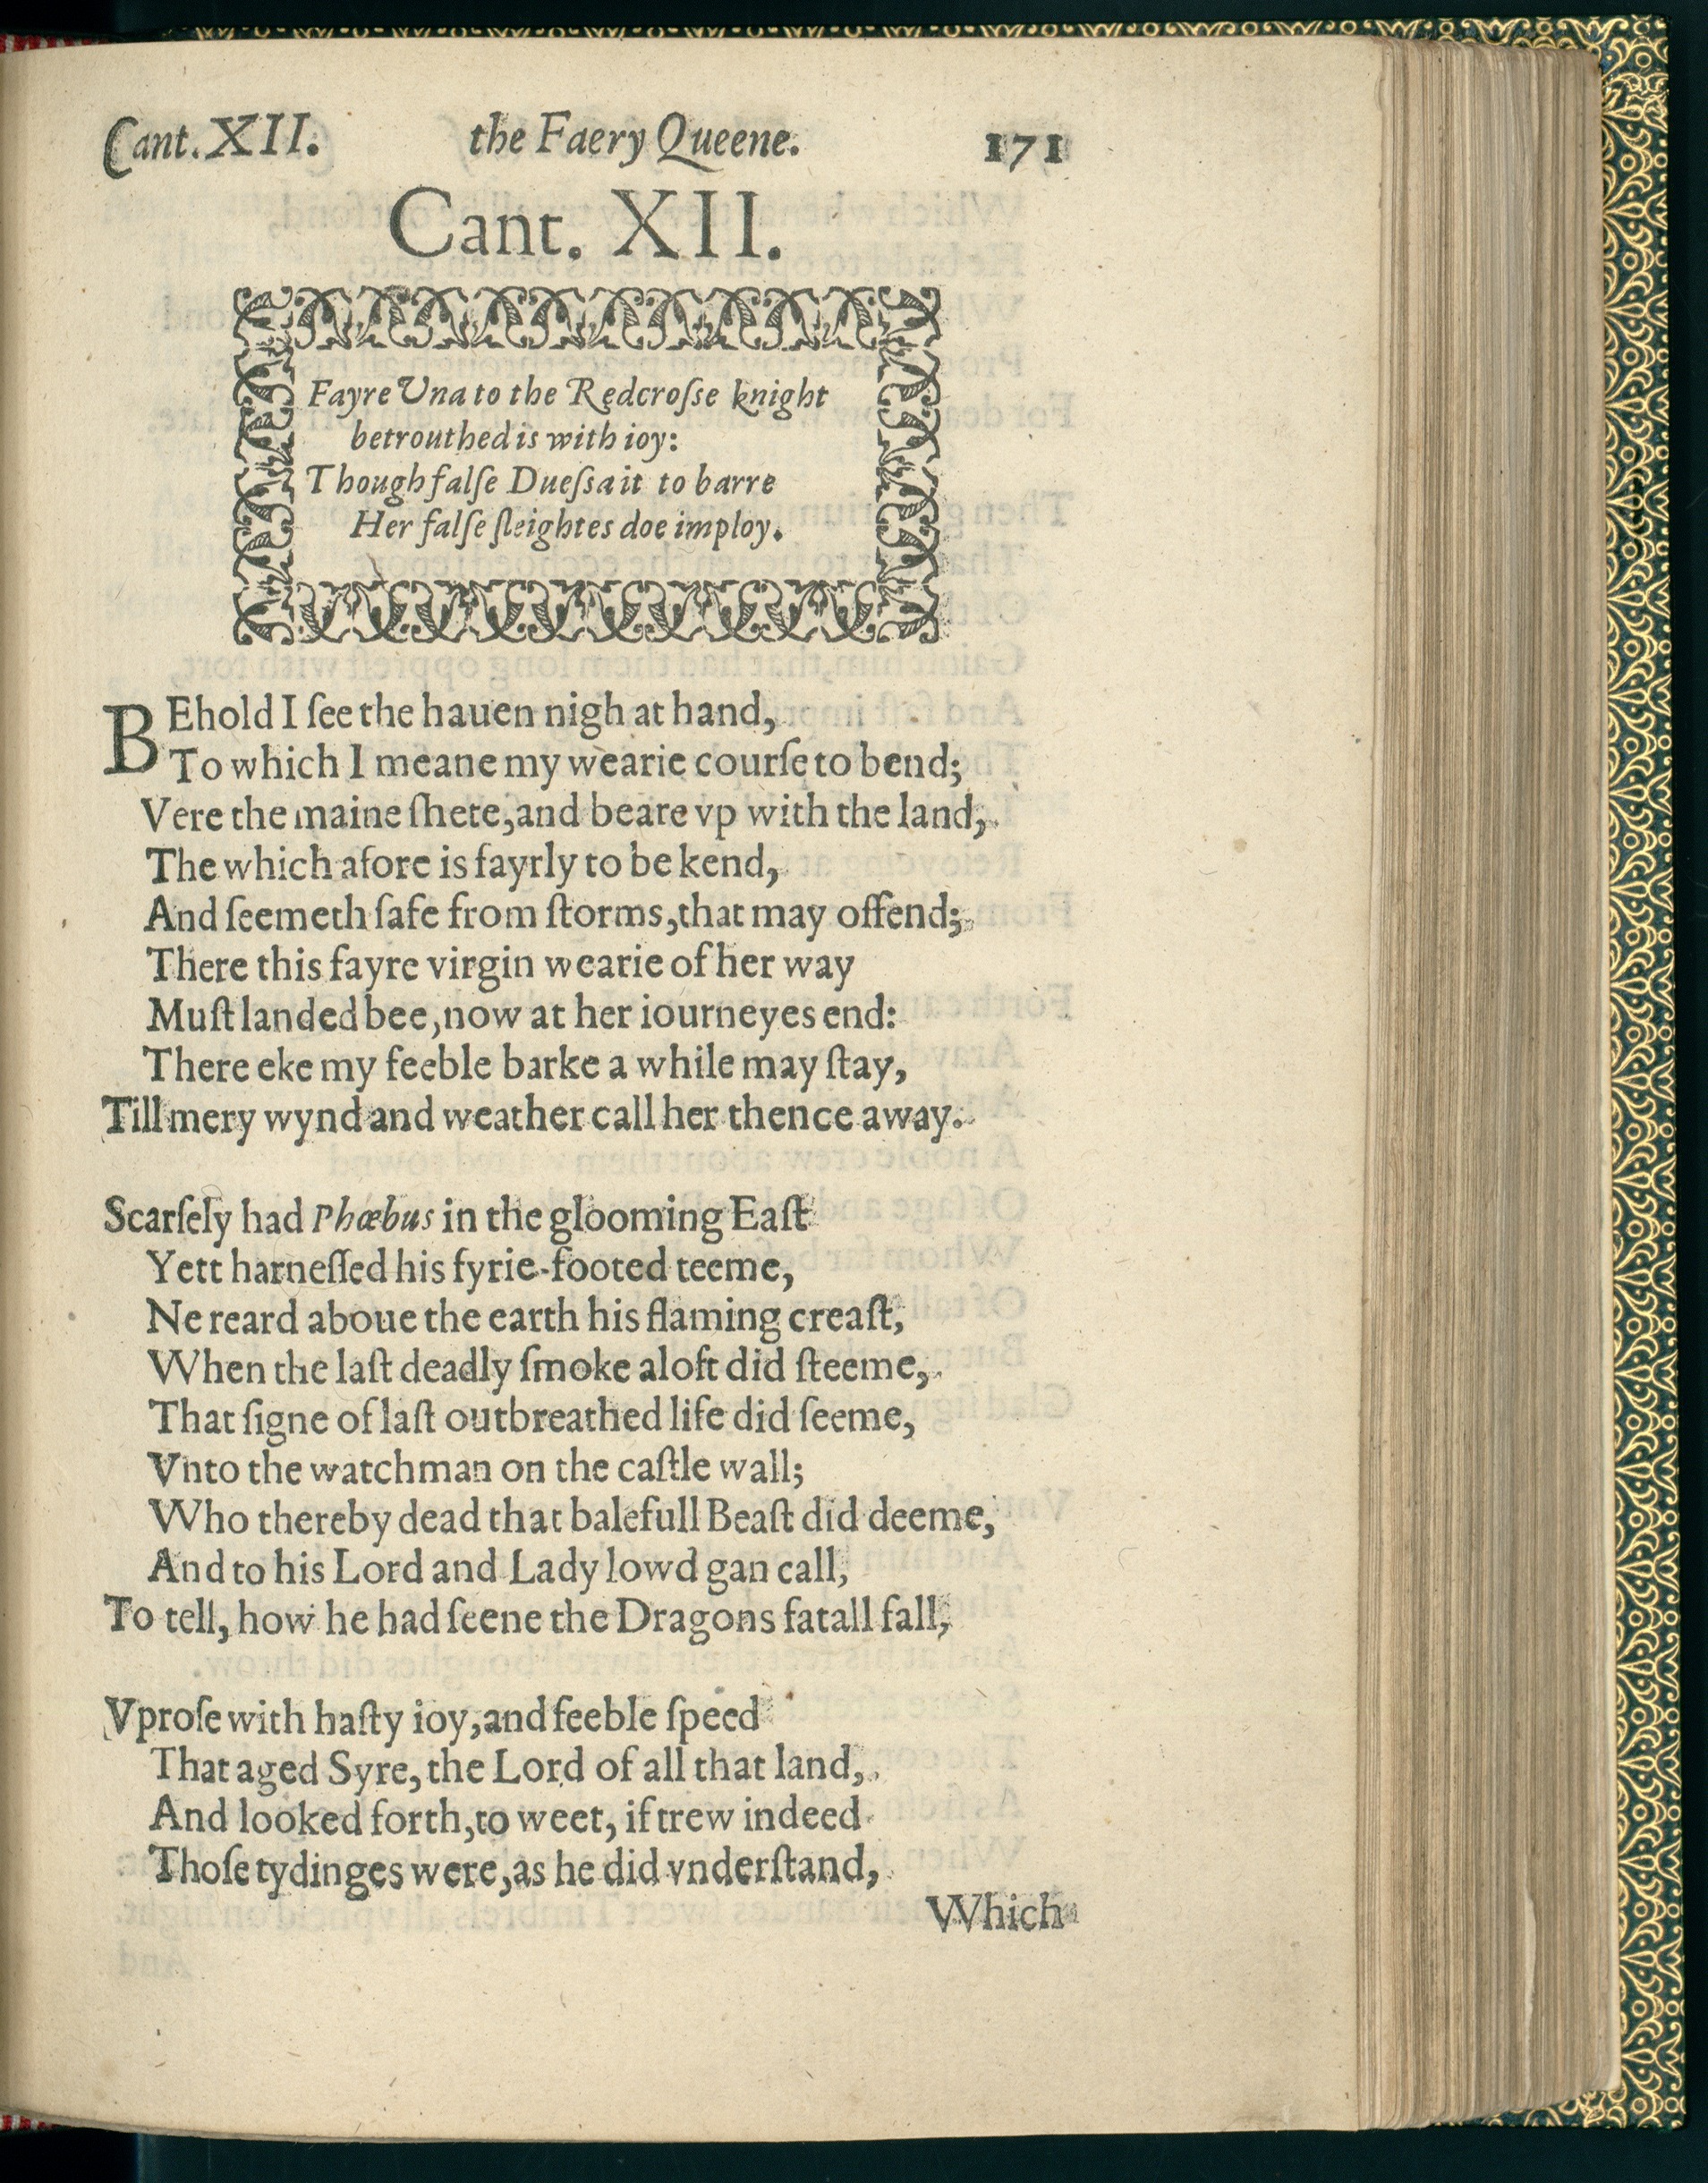 Cant. XII. the Faery Queene. 171
Cant. XII.
Fayre Vna to the Redcroſſe knight
betrouthed is with ioy:
Though falſe Dueſſa it to barre
Her falſe ſleightes doe imploy.
BEhold I ſee the hauen nigh at hand,
To which I meane my wearie courſe to bend;
Vere the maine ſhete, and beare vp with the land,
The which afore is fayrly to be kend,
And ſeemeth ſafe from ſtorms, that may offend;
There this fayre virgin wearie of her way
Muſt landed bee, now at her iourneyes end:
There eke my feeble barke a while may ſtay,
Till mery wynd and weather call her thence away.
Scarſely had Phœbus in the glooming Eaſt
Yett harneſſed his fyrie-footed teeme,
Ne reard aboue the earth his flaming creaſt,
When the laſt deadly ſmoke aloft did ſteeme,
That ſigne of laſt outbreathed life did ſeeme,
Vnto the watchman on the caſtle wall;
Who thereby dead that balefull Beaſt did deeme,
And to his Lord and Lady lowd gan call,
To tell, how he had ſeene the Dragons fatall fall,
Vproſe with haſty ioy, and feeble ſpeed
That aged Syre, the Lord of all that land,
And looked forth, to weet, if trew indeed
Thoſe tydinges were, as he did vnderſtand,
Which